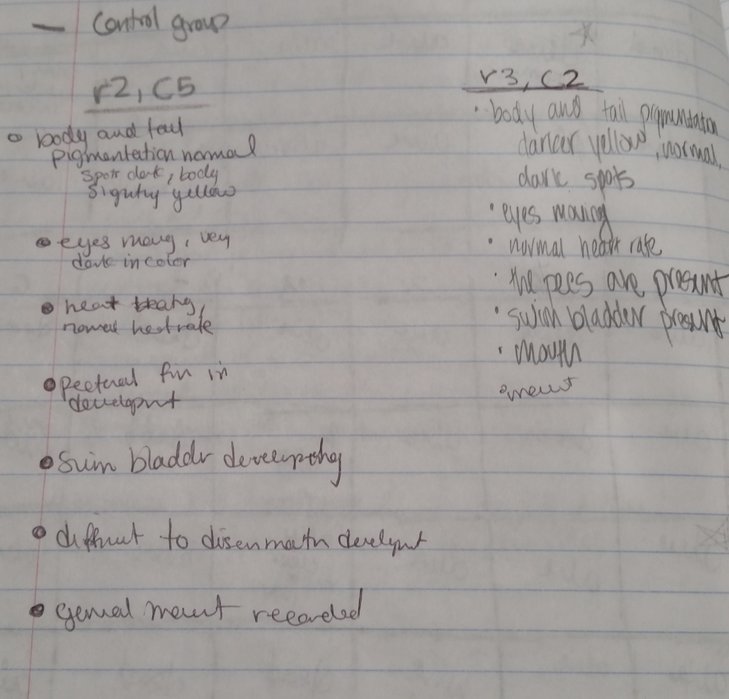 — Control group
r2, C5
o body and tail
pigmentation normal
spots dark, body
slightly yellow
• eyes moving, very
dark in color
• heart beating,
normal heart rate
• pectoral fin in
development
• swim bladder developing
• difficult to discern mouth development
• general movement recorded
r3, C2
• body and tail pigmentation
darker yellow, normal,
dark spots
• eyes moving
• normal heart rate
• the pecs are present
• swim bladder present
• mouth